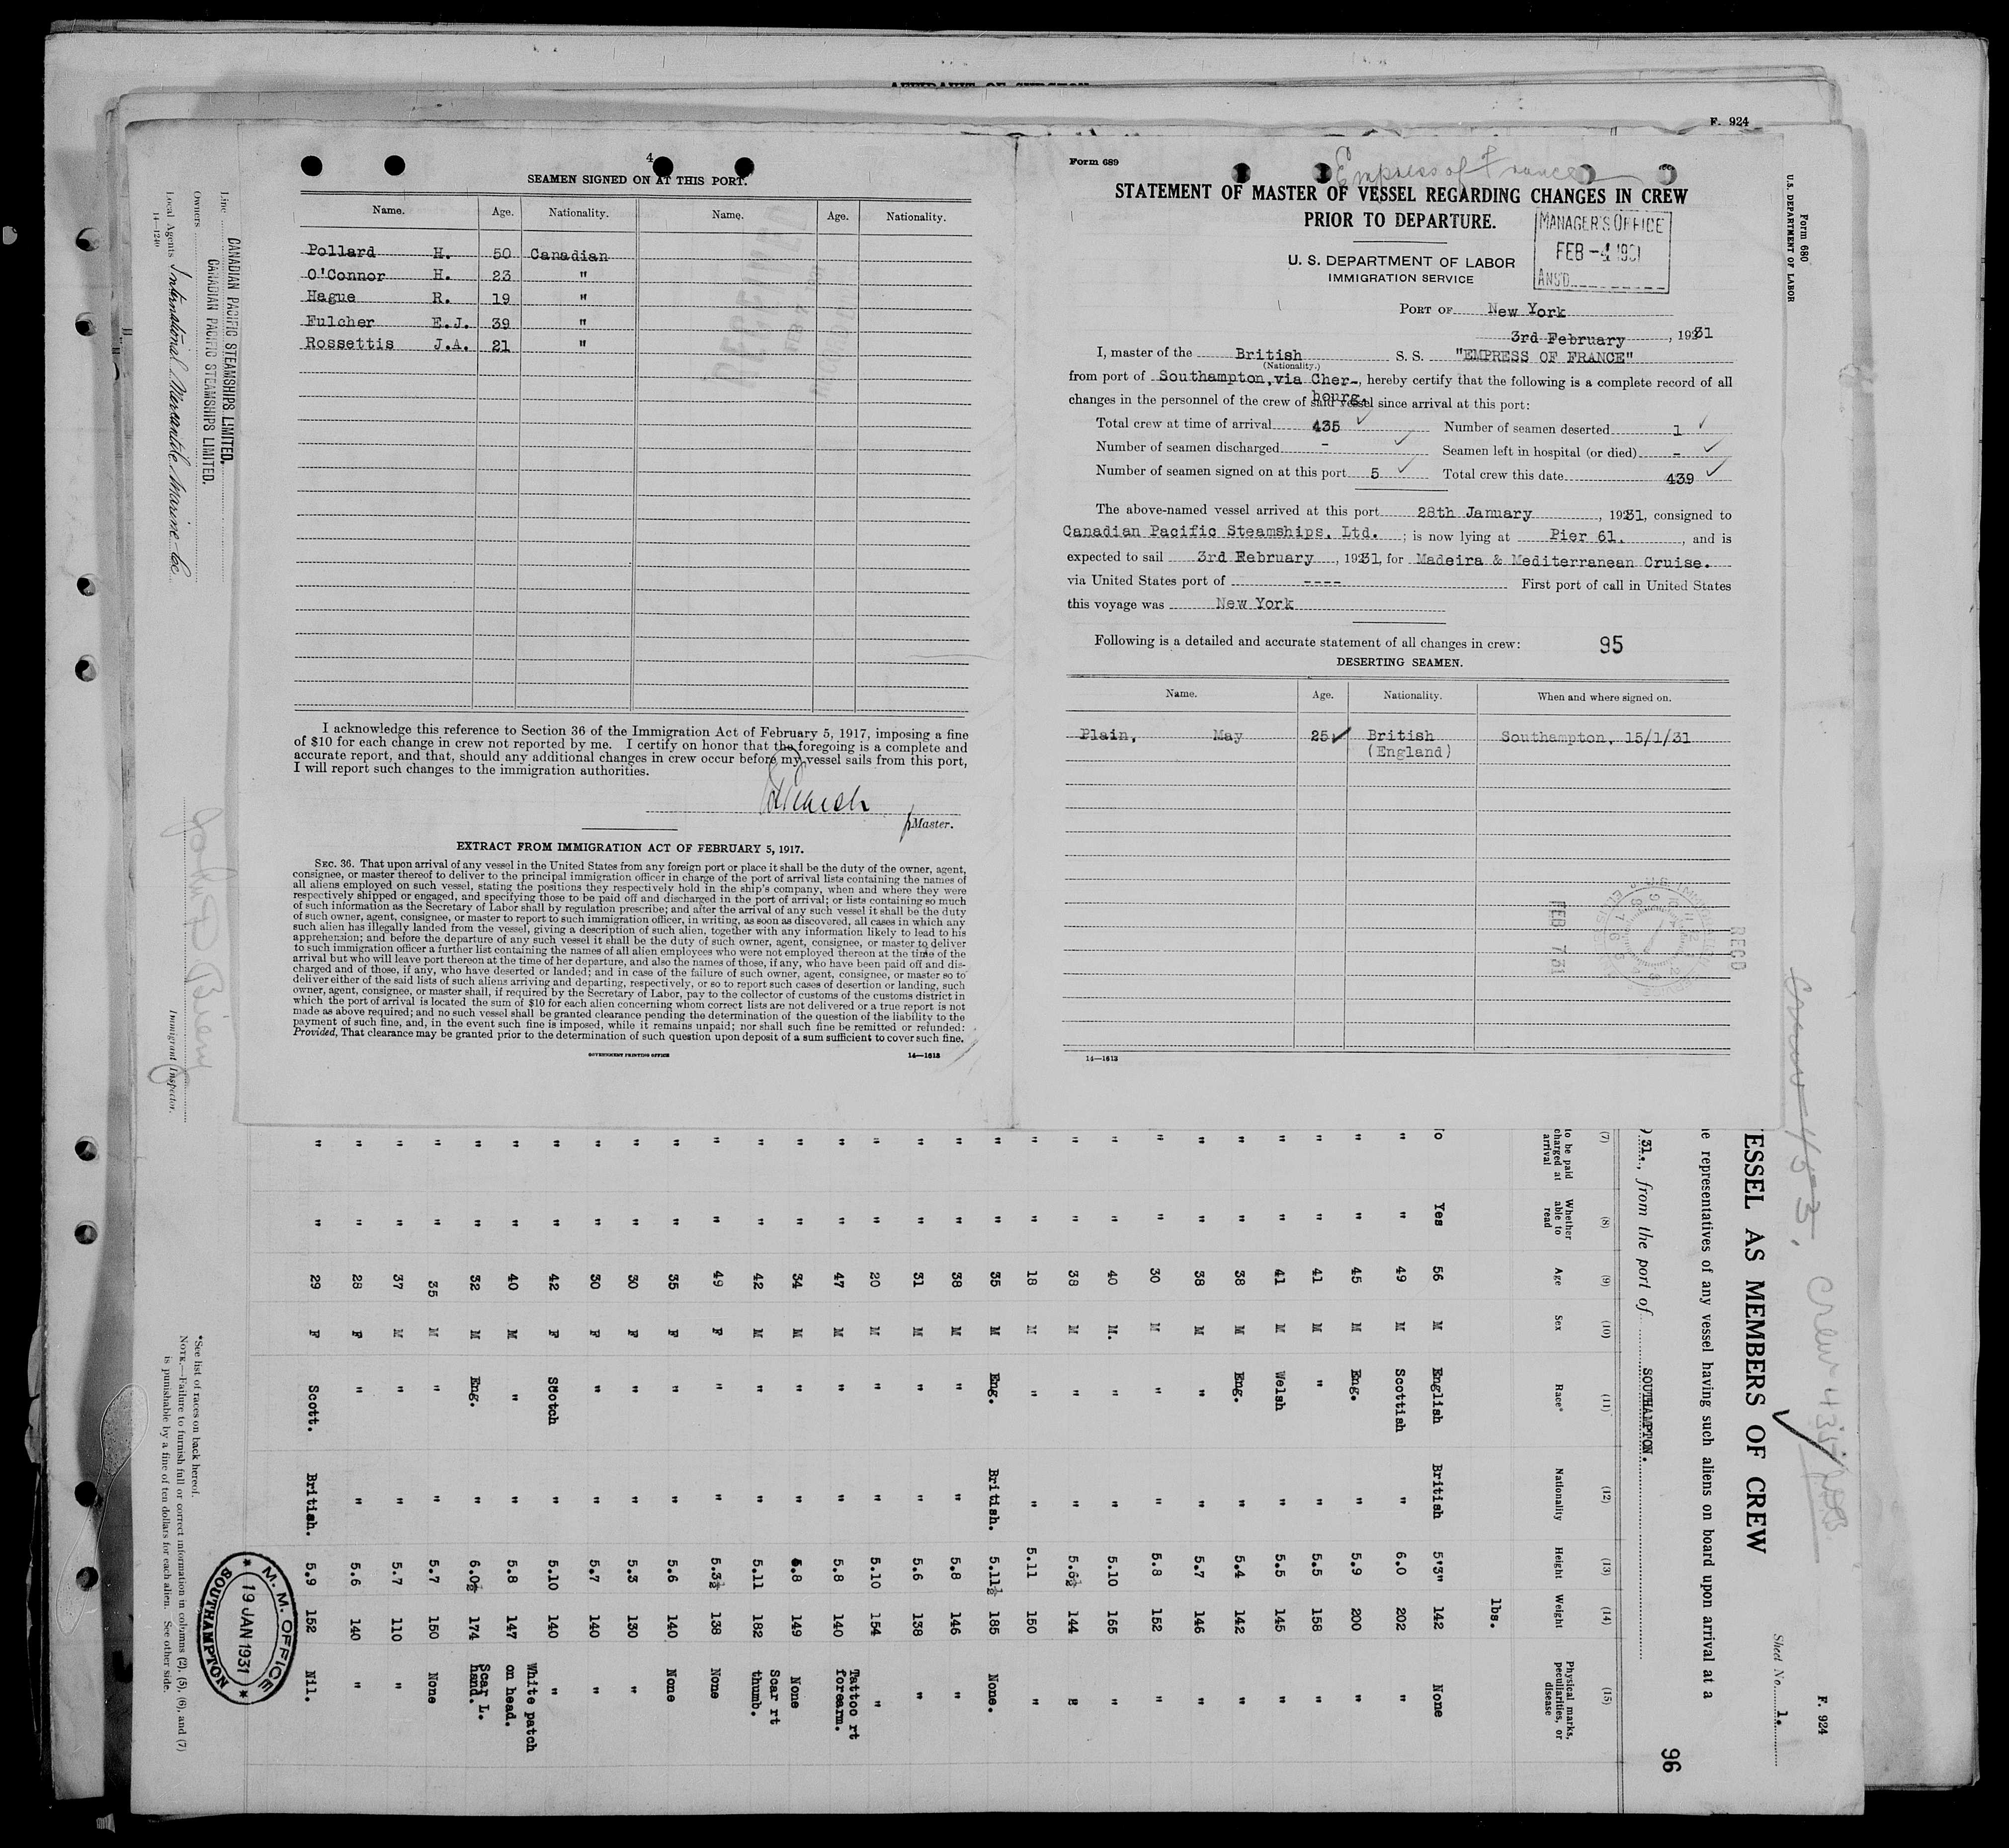 AFFIDAVIT OF SURGEON
F. 924
4
SEAMEN SIGNED ON AT THIS PORT.
Name. Age. Nationality. Name. Age. Nationality.
Pollard H. 50 Canadian
O'Connor H. 23 "
Hague R. 19 "
Fulcher E.J. 39 "
Rossettis J.A. 21 "
I acknowledge this reference to Section 36 of the Immigration Act of February 5, 1917, imposing a fine
of $10 for each change in crew not reported by me. I certify on honor that the foregoing is a complete and
accurate report, and that, should any additional changes in crew occur before my vessel sails from this port,
I will report such changes to the immigration authorities.
Master.
EXTRACT FROM IMMIGRATION ACT OF FEBRUARY 5, 1917.
SEC. 36. That upon arrival of any vessel in the United States from any foreign port or place it shall be the duty of the owner, agent,
consignee, or master thereof to deliver to the principal immigration officer in charge of the port of arrival lists containing the names of
all aliens employed on such vessel, stating the positions they respectively hold in the ship's company, when and where they were
respectively shipped or engaged, and specifying those to be paid off and discharged in the port of arrival; or lists containing so much
of such information as the Secretary of Labor shall by regulation prescribe; and after the arrival of any such vessel it shall be the duty
of such owner, agent, consignee, or master to report to such immigration officer, in writing, as soon as discovered, all cases in which any
such alien has illegally landed from the vessel, giving a description of such alien, together with any information likely to lead to his
apprehension; and before the departure of any such vessel it shall be the duty of such owner, agent, consignee, or master to deliver
to such immigration officer a further list containing the names of all alien employees who were not employed thereon at the time of the
arrival but who will leave port thereon at the time of her departure, and also the names of those, if any, who have been paid off and dis-
charged and of those, if any, who have deserted or landed; and in case of the failure of such owner, agent, consignee, or master so to
deliver either of the said lists of such aliens arriving and departing, respectively, or so to report such cases of desertion or landing, such
owner, agent, consignee, or master shall, if required by the Secretary of Labor, pay to the collector of customs of the customs district in
which the port of arrival is located the sum of $10 for each alien concerning whom correct lists are not delivered or a true report is not
made as above required; and no such vessel shall be granted clearance pending the determination of the question of the liability to the
payment of such fine, and, in the event such fine is imposed, while it remains unpaid; nor shall such fine be remitted or refunded:
Provided, That clearance may be granted prior to the determination of such question upon deposit of a sum sufficient to cover such fine.
GOVERNMENT PRINTING OFFICE 14—1613
Form 689
Empress of France
STATEMENT OF MASTER OF VESSEL REGARDING CHANGES IN CREW
PRIOR TO DEPARTURE.
MANAGER'S OFFICE
FEB -4 1931
ANS'D
U. S. DEPARTMENT OF LABOR
IMMIGRATION SERVICE
PORT OF New York
3rd February, 1931
I, master of the British S. S. "EMPRESS OF FRANCE"
(Nationality.)
from port of Southampton, via Cher-, hereby certify that the following is a complete record of all
bourg.
changes in the personnel of the crew of said vessel since arrival at this port:
Total crew at time of arrival 435 Number of seamen deserted 1
Number of seamen discharged - Seamen left in hospital (or died) -
Number of seamen signed on at this port 5 Total crew this date 439
The above-named vessel arrived at this port 28th January, 1931, consigned to
Canadian Pacific Steamships, Ltd.; is now lying at Pier 61., and is
expected to sail 3rd February, 1931, for Madeira & Mediterranean Cruise.
via United States port of ---- First port of call in United States
this voyage was New York
Following is a detailed and accurate statement of all changes in crew: 95
DESERTING SEAMEN.
Name. Age. Nationality. When and where signed on.
Plain, May 25 British Southampton, 15/1/31
(England)
RECD
FEB 7 31
14—1613
Form 680
U. S. DEPARTMENT OF LABOR
Line CANADIAN PACIFIC STEAMSHIPS LIMITED.
Owners CANADIAN PACIFIC STEAMSHIPS LIMITED.
Local Agents International Mercantile Marine Co
14—1240
Immigrant Inspector.
F. 924
Sheet No. 1.
ESSEL AS MEMBERS OF CREW
e representatives of any vessel having such aliens on board upon arrival at a
31., from the port of SOUTHAMPTON.
96
(7) (8) (9) (10) (11) (12) (13) (14) (15)
to be paid charged at arrival Whether able to read Age Sex Race* Nationality Height Weight Physical marks, peculiarities, or disease
lbs.
o Yes 56 M English British 5'3" 142 None
" " 49 M Scottish " 6.0 202 "
" " 45 M Eng. " 5.9 200 "
" " 41 M " " 5.5 158 "
" " 41 M Welsh " 5.5 145 "
" " 38 M Eng. " 5.4 142 "
" " 38 M " " 5.7 146 "
" " 30 M " " 5.8 152 "
" " 40 M. " " 5.10 165 "
" " 38 M " " 5.6½ 144 "
" " 18 M " " 5.11 150 "
" " 35 M Eng. British. 5.11½ 185 None.
" " 38 M " " 5.8 146 "
" " 31 M " " 5.6 138 "
" " 20 M " " 5.10 154 "
" " 47 M " " 5.8 140 Tattoo rt forearm.
" " 34 M " " 5.8 149 None
" " 42 M " " 5.11 182 Scar rt thumb.
" " 49 F " " 5.3½ 138 None
" " 35 F " " 5.6 140 None
" " 30 F " " 5.3 130 "
" " 30 F " " 5.7 140 "
" " 42 F Scotch " 5.10 140 "
" " 40 M " " 5.8 147 White patch on head.
" " 32 M Eng. " 6.0½ 174 Scar L. hand.
" " 35 M " " 5.7 150 None
" " 37 M " " 5.7 110 "
" " 28 F " " 5.6 140 "
" " 29 F Scott. British. 5.9 152 Nil.
*See list of races on back hereof.
NOTE.—Failure to furnish full or correct information in columns (2), (5), (6), and (7)
is punishable by a fine of ten dollars for each alien. See other side.
M. M. OFFICE
19 JAN 1931
SOUTHAMPTON